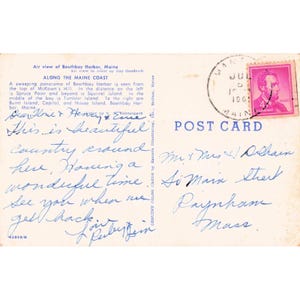 Air view of Boothbay Harbor, Maine
ALONG THE MAINE COAST
A sweeping panorama of Boothbay Harbor is seen
from the top of McKown's Hill. In the distance on the left
is Spruce Point and beyond is Squirrel Island. In the
middle of the bay is Tumbler Island. To the right are
Burnt Island, Capitol, and Mouse Island, Boothbay Har-
bor, Maine.
Dear Mr & Henry & Ernie
This is beautiful
country around
here. Having a
wonderful time
See you when we
get back.
Love
Ruby & Jim
POST CARD
JUL
MAINE
Mr & Mrs
So Main Street
Raynham
Mass.